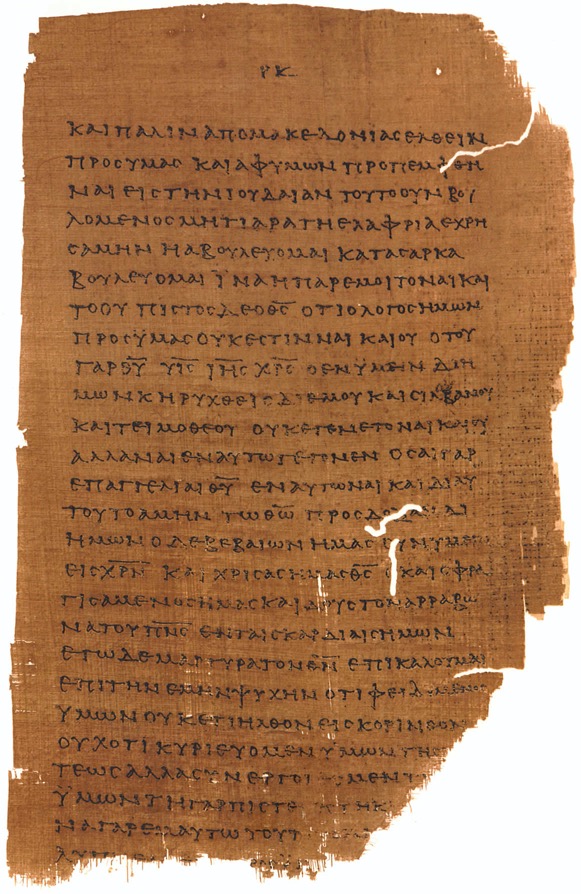 ΡΚ
ΚΑΙΠΑΛΙΝΑΠΟΜΑΚΕΔΟΝΙΑϹΕΛΘΕΙΝ
ΠΡΟϹΥΜΑϹ ΚΑΙΑΦΥΜΩΝ ΠΡΟΠΕΜΦΘΗ
ΝΑΙ ΕΙϹΤΗΝΙΟΥΔΑΙΑΝ ΤΟΥΤΟΟΥΝ ΒΟΥ
ΛΟΜΕΝΟϹΜΗΤΙΑΡΑΤΗΕΛΑΦΡΙΑΕΧΡΗ
ϹΑΜΗΝ ΗΑΒΟΥΛΕΥΟΜΑΙ ΚΑΤΑϹΑΡΚΑ
ΒΟΥΛΕΥΟΜΑΙ ΪΝΑΗΠΑΡΕΜΟΙΤΟΝΑΙΚΑΙ
ΤΟΟΥ ΠΙϹΤΟϹΔΕΟΘ̅Ϲ̅ ΟΤΙΟΛΟΓΟϹΗΜΩΝ
ΠΡΟϹΫΜΑϹΟΥΚΕϹΤΙΝΝΑΙ ΚΑΙΟΥ ΟΤΟΥ
ΓΑΡΘ̅Υ̅ Υ̅Ι̅Ϲ̅ Ι̅Η̅Ϲ̅ Χ̅Ρ̅Ϲ̅ ΟΕΝΥΜΕΙΝ ΔΙΗ
ΜΩΝΚΗΡΥΧΘΕΙϹΔΙΕΜΟΥΚΑΙϹΙΛΒΑΝΟΥ
ΚΑΙΤΕΙΜΟΘΕΟΥ ΟΥΚΕΓΕΝΕΤΟΝΑΙΚΑΙΟΥ
ΑΛΛΑΝΑΙΕΝΑΥΤΩΓΕΓΟΝΕΝ ΟϹΑΙΓΑΡ
ΕΠΑΓΓΕΛΙΑΙΘ̅Υ̅ ΕΝΑΥΤΩΝΑΙ ΚΑΙΔΙΑΥ
ΤΟΥΤΟΑΜΗΝ ΤΩΘ̅Ω̅ ΠΡΟϹΔΟΞΑΝ ΔΙ
ΗΜΩΝ ΟΔΕΒΕΒΑΙΩΝ ΗΜΑϹ ϹΥΝΥΜΕΙΝ
ΕΙϹΧ̅Ρ̅Ν̅ ΚΑΙ ΧΡΙϹΑϹΗΜΑϹΘ̅Ϲ̅ ΟΚΑΙϹΦΡΑ
ΓΙϹΑΜΕΝΟϹΗΜΑϹΚΑΙΔΟΥϹΤΟΝΑΡΡΑΒΩ
ΝΑΤΟΥΠ̅Ν̅Ϲ̅ ΕΝΤΑΙϹΚΑΡΔΙΑΙϹΗΜΩΝ
ΕΓΩΔΕΜΑΡΤΥΡΑΤΟΝΘ̅Ν̅ ΕΠΙΚΑΛΟΥΜΑΙ
ΕΠΙΤΗΝΕΜΗΝΨΥΧΗΝ ΟΤΙΦΕΙΔΟΜΕΝΟϹ
ΫΜΩΝΟΥΚΕΤΙΗΛΘΟΝΕΙϹΚΟΡΙΝΘΟΝ
ΟΥΧΟΤΙΚΥΡΙΕΥΟΜΕΝΫΜΩΝΤΗϹ
ΤΕΩϹΑΛΛΑϹΥΝΕΡΓΟΙ ΜΕΝΤ
ΫΜΩΝΤΗΓΑΡΠΙϹΤΕ ΤΗΚ
ΝΑΓΑΡΕΜΑΥΤΩΤΟΥΤ
ΛΥΠ